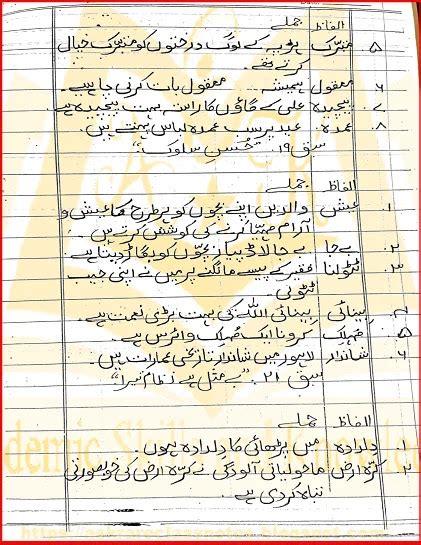 الفاظ جملے
۵ متبرک ہڑپہ کے لوگ درختوں کو متبرک خیال
کرتے تھے۔
۶ معقول ہمیشہ معقول بات کرنی چاہیے۔
۷۔ پیچیدہ علی کے گاؤں کا راستہ بہت پیچیدہ ہے۔
۸۔ عمدہ عید پر سب عمدہ لباس پہنتے ہیں۔
سبق ۱۹۔ "حُسنِ سلوک"
الفاظ جملے
۱۔ عیش والدین اپنے بچوں کو ہر طرح کا عیش و
آرام مہیّا کرنے کی کوشش کرتے ہیں
۲۔ بے جا بے جا لاڈ پیار بچّوں کو بگاڑ دیتا ہے
۳۔ ٹٹولنا فقیر کے پیسے مانگنے پر میں نے اپنی جیب
ٹٹولی۔
۴۔ بینائی بینائی اللہ کی بہت بڑی نعمت ہے۔
۵ مُہلک کرونا ایک مُہلک وائرس ہے۔
۶۔ شاندار لاہور میں شاندار تاریخی عمارات ہیں۔
سبق ۲۱۔ "بے مثل ہے نظام تیرا"
الفاظ جملے
۱۔ دلدادہ میں پڑھائی کا دلدادہ ہوں۔
۲۔ کرّہ ارض ماحولیاتی آلودگی نے کرّہ ارض کی خوبصورتی
تباہ کر دی ہے۔